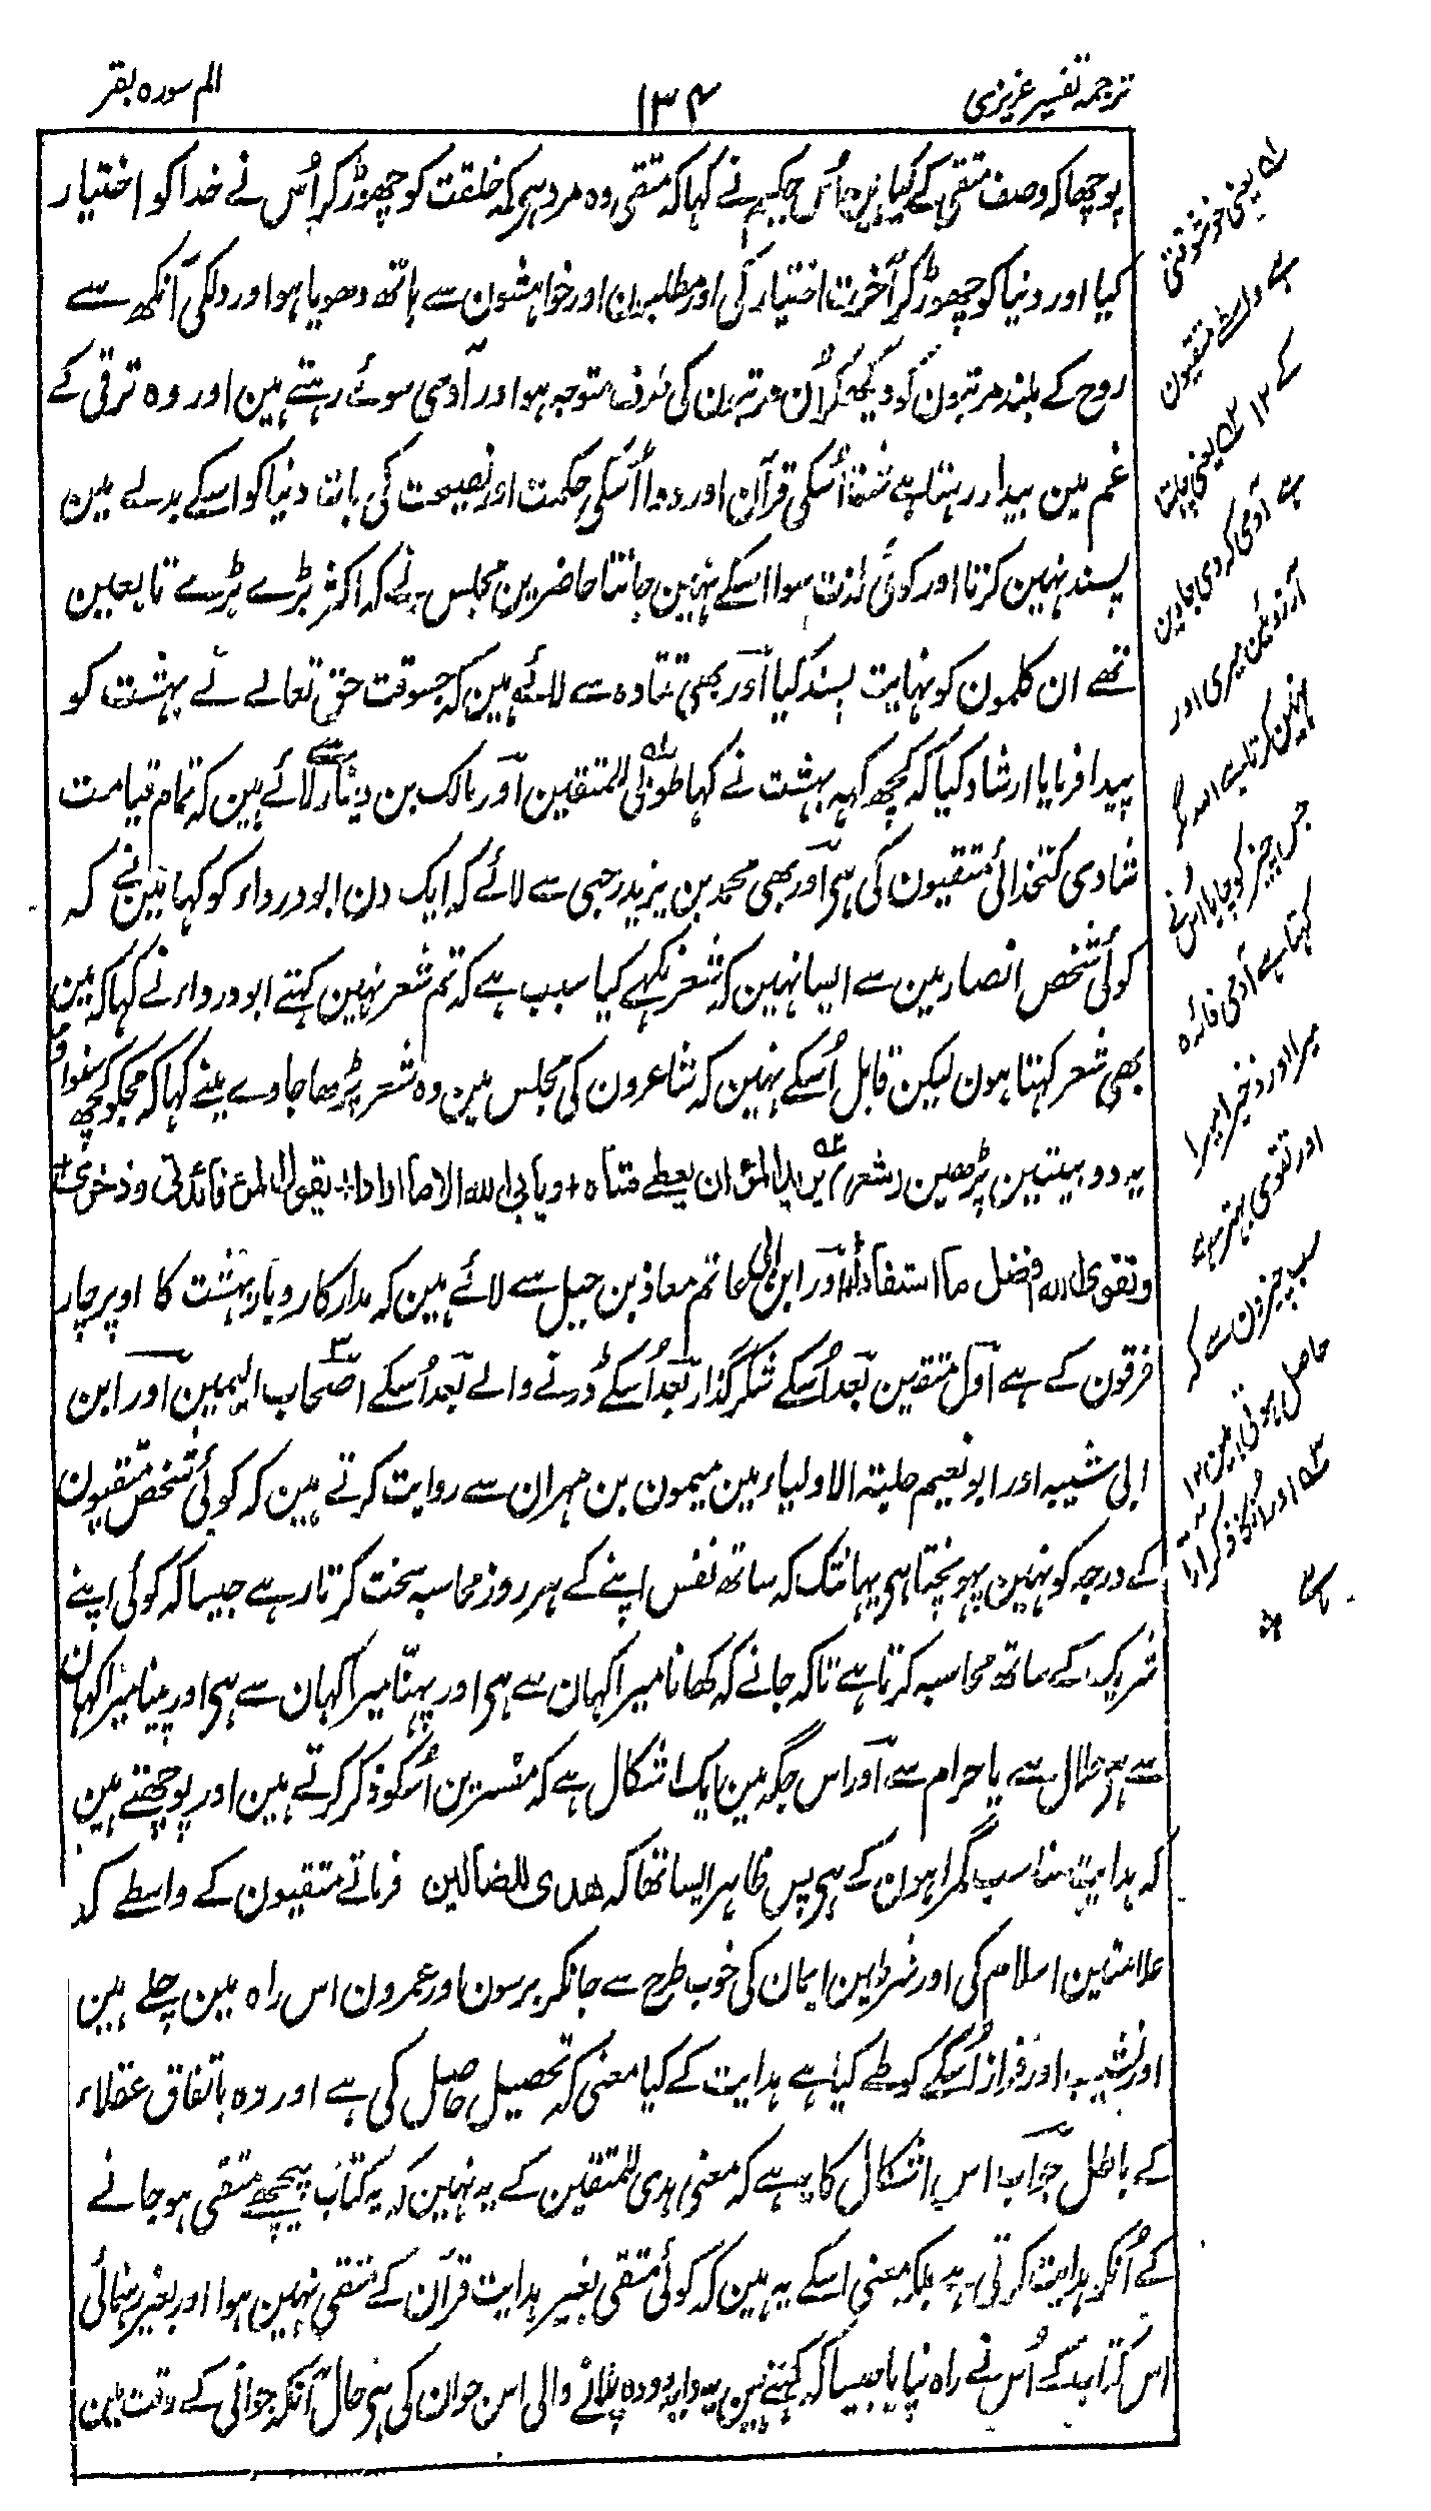 ترجمہ تفسیر عزیزی
۱۳۴
الم سورہ بقر
پوچھا کہ وصف متقی کے کیا ہین اُس حکیم نے کہا کہ متقی وہ مرد ہی کہ خلقت کو چھوڑ کر اُس نے خدا کو اختیار
کیا اور دنیا کو چھوڑ کر آخرت اختیار کی اور مطلبون اور خواہشون سے ہاتھ دھویا ہو اور دلکی آنکھ سے
روح کے بلند مرتبون کو دیکھکر اُن مرتبون کی طرف متوجہ ہو اور آدمی سوئے رہتے ہین اور وہ ترقی کے
غم مین بیدار رہتا ہے شفا اُسکی قرآن اور دوا اُسکی حکمت اور نصیحت کی بات دنیا کو اسکے بدلے مین
پسند نہین کرتا اور کوئی لذت سوا اسکے نہین جانتا حاضرین مجلس نے کہ اکثر بڑے بڑے تابعین
تھے ان کلمون کو نہایت پسند کیا اور بھی قتادہ سے لائے ہین کہ جسوقت حق تعالے نے بہشت کو
پیدا فرمایا ارشاد کیا کہ کچھ کہہ بہشت نے کہا طوبٰی للمتقین اور مالک بن دینار سے لائے ہین کہ تمام قیامت
شادی کتخدائی متقیون کی ہی اور بھی محمد بن یزید رحبی سے لائے کہ ایک دن ابو درداء کو کہا مینے کہ
کوئی شخص انصار مین سے ایسا نہین کہ شعر نکہے کیا سبب ہے کہ تم شعر نہین کہتے ابو درداء نے کہا کہ مین
بھی شعر کہتا ہون لیکن قابل اُسکے نہین کہ شاعرون کی مجلس مین وہ شعر پڑھا جاوے مینے کہا کہ مجکو کچھ سنواؤ
یہ دو بیتین پڑھین شعر یرید المرء ان یعطے مناہ + ویابی اللہ الا ما ارادا + یقول المرء فائدتی وذخری +
وتقوی اللہ افضل ما استفادا اور ابن ابی حاتم معاذ بن جبل سے لائے ہین کہ مدار کاروبار بہشت کا اوپر چار
فرقون کے ہے اول متقین بعد اُسکے شکرگذار بعد اُسکے ڈرنے والے بعد اُسکے اصحاب الیمین اور ابن
ابی شیبہ اور ابو نعیم حلیتہ الاولیاء مین میمون بن مہران سے روایت کرتے ہین کہ کوئی شخص متقیون
کے درجہ کو نہین پہونچتا ہی یہانتک کہ ساتھ نفس اپنے کے ہر روز محاسبہ سخت کرتا رہے جیسا کہ کوئی اپنے
شریک کے ساتھ محاسبہ کرتا ہے تاکہ جانے کہ کھانا میرا کہان سے ہی اور پہننا میرا کہان سے ہی اور پینا میرا کہان
سے ہی حلال سے یا حرام سے اور اس جگہ مین ایک اشکال ہے کہ مفسرین اُسکو ذکر کرتے ہین اور پوچھتے ہین
کہ ہدایت مناسب گمراہون کے ہی پس ظاہر ایسا تھا کہ ھدی للضالین فرماتے متقیون کے واسطے کہ
علامتین اسلام کی اور شرطین ایمان کی خوب طرح سے جانکر برسون اور عمرون اس راہ مین چلے ہین
اور نشیب اور فراز اُسکے کو طے کیا ہے ہدایت کے کیا معنی کہ تحصیل حاصل کی ہے اور وہ باتفاق عقلاء
کے باطل جواب اس اشکال کا یہ ہے کہ معنی ہدی للمتقین کے یہ نہین کہ یہ کتاب پیچھے متقی ہو جانے
کے اُنکو ہدایت کرتی ہے بلکہ معنی اسکے یہ ہین کہ کوئی متقی بغیر ہدایت قرآن کے متقی نہین ہوا اور بغیر رہنمائی
اس کتاب کے اُس نے راہ نپایا جیسا کہ کہتے ہین یہ دایہ دودہ پلانے والی اس جوان کی ہی حال آنکہ جوانی کے وقت مین
لہ یعنی خوشوقتی
ہے واسطے متقیون
کے ۱۲ لہ یعنی چاہتا
ہے آدمی کہ دی جاوین
آرزوئین میری اور
نہین کرتا ہے اللہ مگر
جس چیز کو چاہا اُسنے
کہتا ہے آدمی فائدہ
میرا اور ذخیرا میرا
اور تقوی بہتر ہے
سب چیزون سے کہ
حاصل ہوتی ہین ۱۲
لہ اور انکا ذکر آویگا